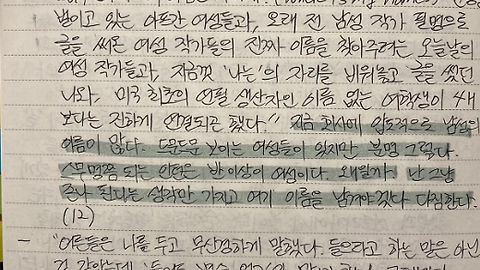 벌이고 있는 아프간 여성들과, 오래 전 남성 작가 필명으로
글을 써온 여성 작가들의 진짜 이름을 찾아주려는 오늘날의
여성 작가들과, 지금껏 '나는'의 자리를 비워놓고 글을 썼던
나와, 미국 최초의 연필 생산자인 이름 없는 여학생이 4H
보다는 진하게 연결되곤 했다." 지금 회사에 압도적으로 남성의
이름이 많다. 드문드문 보이는 여성들이 있지만 분명 그렇다.
스무명쯤 되는 인턴은 반 이상이 여성이다. 왜일까. 난 그냥
존나 된다는 생각만 가지고 여기 이름을 남겨야겠다 다짐한다.
(12)
- "어른들은 나를 두고 무산검하게 말했다. 들으라고 하는 말은 아닌